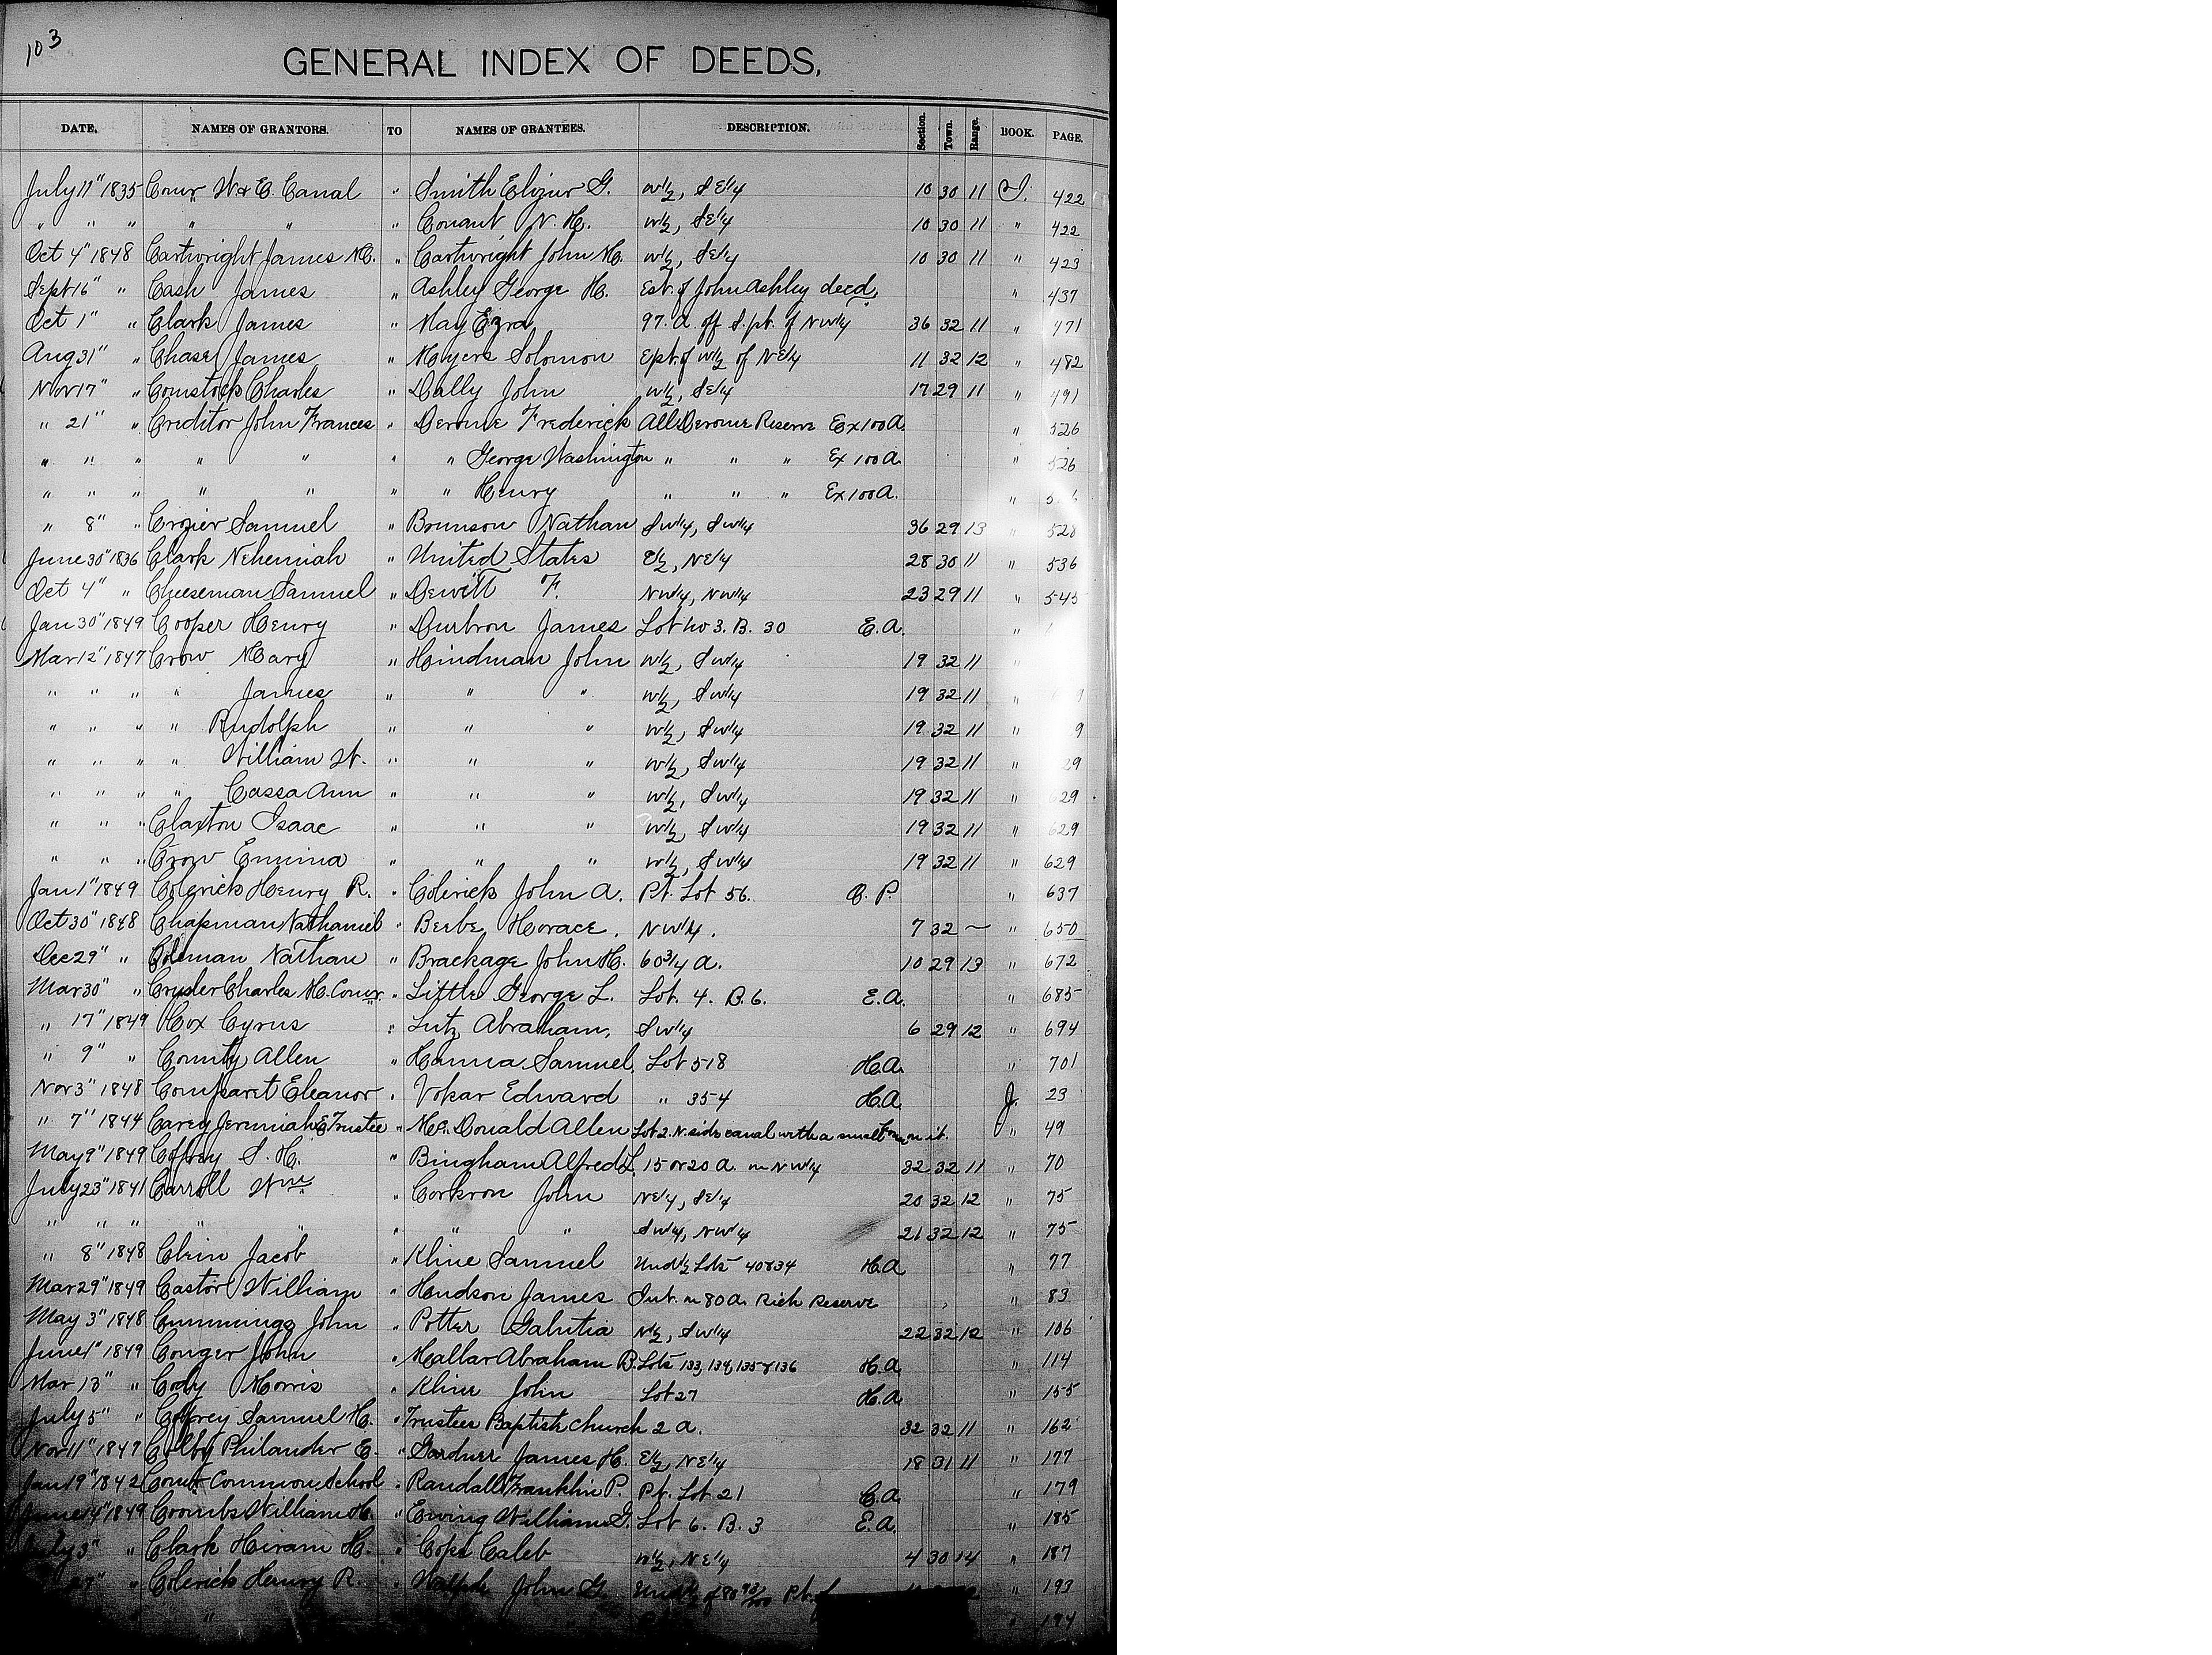 103
GENERAL INDEX OF DEEDS,
DATE. NAMES OF GRANTORS. TO NAMES OF GRANTEES. DESCRIPTION. Section. Town. Range. BOOK. PAGE.
July 11" 1835 Comr W & E. Canal " Smith Elizur G. W1/2, SE1/4 10 30 11 I. 422
" " " " " " Conant N. H. W1/2, SE1/4 10 30 11 " 422
Oct 4" 1848 Cartwright James M. " Cartwright John M. W1/2, SE1/4 10 30 11 " 423
Sept 16" " Cash James " Ashley George H. Est. of John Ashley decd, " 437
Oct 1" " Clark James " May Ezra 97. A. off S. pt. of NW1/4 36 32 11 " 471
Aug 31" " Chase James " Myers Solomon E pt. of W1/2 of NE1/4 11 32 12 " 482
Nov 17" " Comstock Charles " Dally John W1/2, SE1/4 17 29 11 " 491
" 21" " Creditor John Frances " Derome Frederick All Derome Reserve Ex 100 A. " 526
" " " " " " " George Washington " " " Ex 100 A. " 526
" " " " " " " Henry " " " Ex 100 A. "
" 8" " Crozier Samuel " Brunson Nathan SW1/4, SW1/4 36 29 13 " 528
June 30" 1836 Clark Nehemiah " United States E1/2, NE1/4 28 30 11 " 536
Oct 4" " Cheeseman Samuel " Dewitt F. NW1/4, NW1/4 23 29 11 " 545
Jan 30" 1849 Cooper Henry " Durbron James Lot No 3. B. 30 E. A. "
Mar 12" 1847 Crow Mary " Hindman John W1/2, SW1/4 19 32 11 "
" " " " James " " " W1/2, SW1/4 19 32 11
" " " " Rudolph " " " W1/2, SW1/4 19 32 11 " 9
" " " " William W. " " " W1/2, SW1/4 19 32 11 " 29
" " " " Cassa Ann " " " W1/2, SW1/4 19 32 11 " 629
" " " Claxton Isaac " " " W1/2, SW1/4 19 32 11 " 629
" " " Crow Emma " " " W1/2, SW1/4 19 32 11 " 629
Jan 1" 1849 Colerick Henry R. " Colerick John A. Pt. Lot 56. O. P. " 637
Oct 30" 1848 Chapman Nathaniel " Beebe Horace. NW1/4. 7 32 ~ " 650
Dec 29" " Coleman Nathan " Brackage John H. 60 3/4 A. 10 29 13 " 672
Mar 30" " Cryster Charles H. Comr. " Little George L. Lot. 4. B. 6. E. A. " 685
" 17" 1849 Cox Cyrus " Lutz Abraham, SW1/4 6 29 12 " 694
" 9" " County Allen " Hanna Samuel. Lot 518 H. A. " 701
Nov 3" 1848 Comparet Eleanor " Vokar Edward " 354 H. A. J. 23
" 7" 1844 Carey Jeremiah E Trustee " McDonald Allen Lot 2. N. side canal with a small on it. " 49
May 9" 1849 Coffrey S. H. " Bingham Alfred L. 15 or 20 A. in NW1/4 32 32 11 " 70
July 23" 1841 Carroll Wm " Corkron John NE1/4, SE1/4 20 32 12 " 75
" " " " " " " " SW1/4, NW1/4 21 32 12 " 75
" 8" 1848 Clein Jacob " Kline Samuel Und 1/2 Lots 40 & 34 H. A. " 77
Mar 29" 1849 Castor William " Hudson James Int. in 80 A. Rich Reserve " 83
May 3" 1848 Cummings John " Potter Galutia N1/2, SW1/4 22 32 12 " 106
June 1" 1849 Conger John " Mallar Abraham B. Lots 133, 134, 135 & 136 H. A. " 114
Mar 13" " Cody Morris " Kline John Lot 27 H. A. " 155
July 5" " Coffrey Samuel H. " Trustees Baptist Church 2 A. 32 32 11 " 162
Nov 11" 1847 Colby Philander E. " Gardner James H. E1/2, NE1/4 18 31 11 " 177
Jan 19" 1842 Comr Common School " Randall Franklin P. Pt. Lot 21 C. A. " 179
June 14" 1849 Coombs William H. " Ewing William G. Lot 6. B. 3 E. A. " 185
July 3" " Clark Hiram H. " Cope Caleb W1/2, NE1/4 4 30 14 " 187
27" " Colerick Henry R. " Walpole John G. Und 1/2 of 80 93/100 Pt. of " 193
" " 194